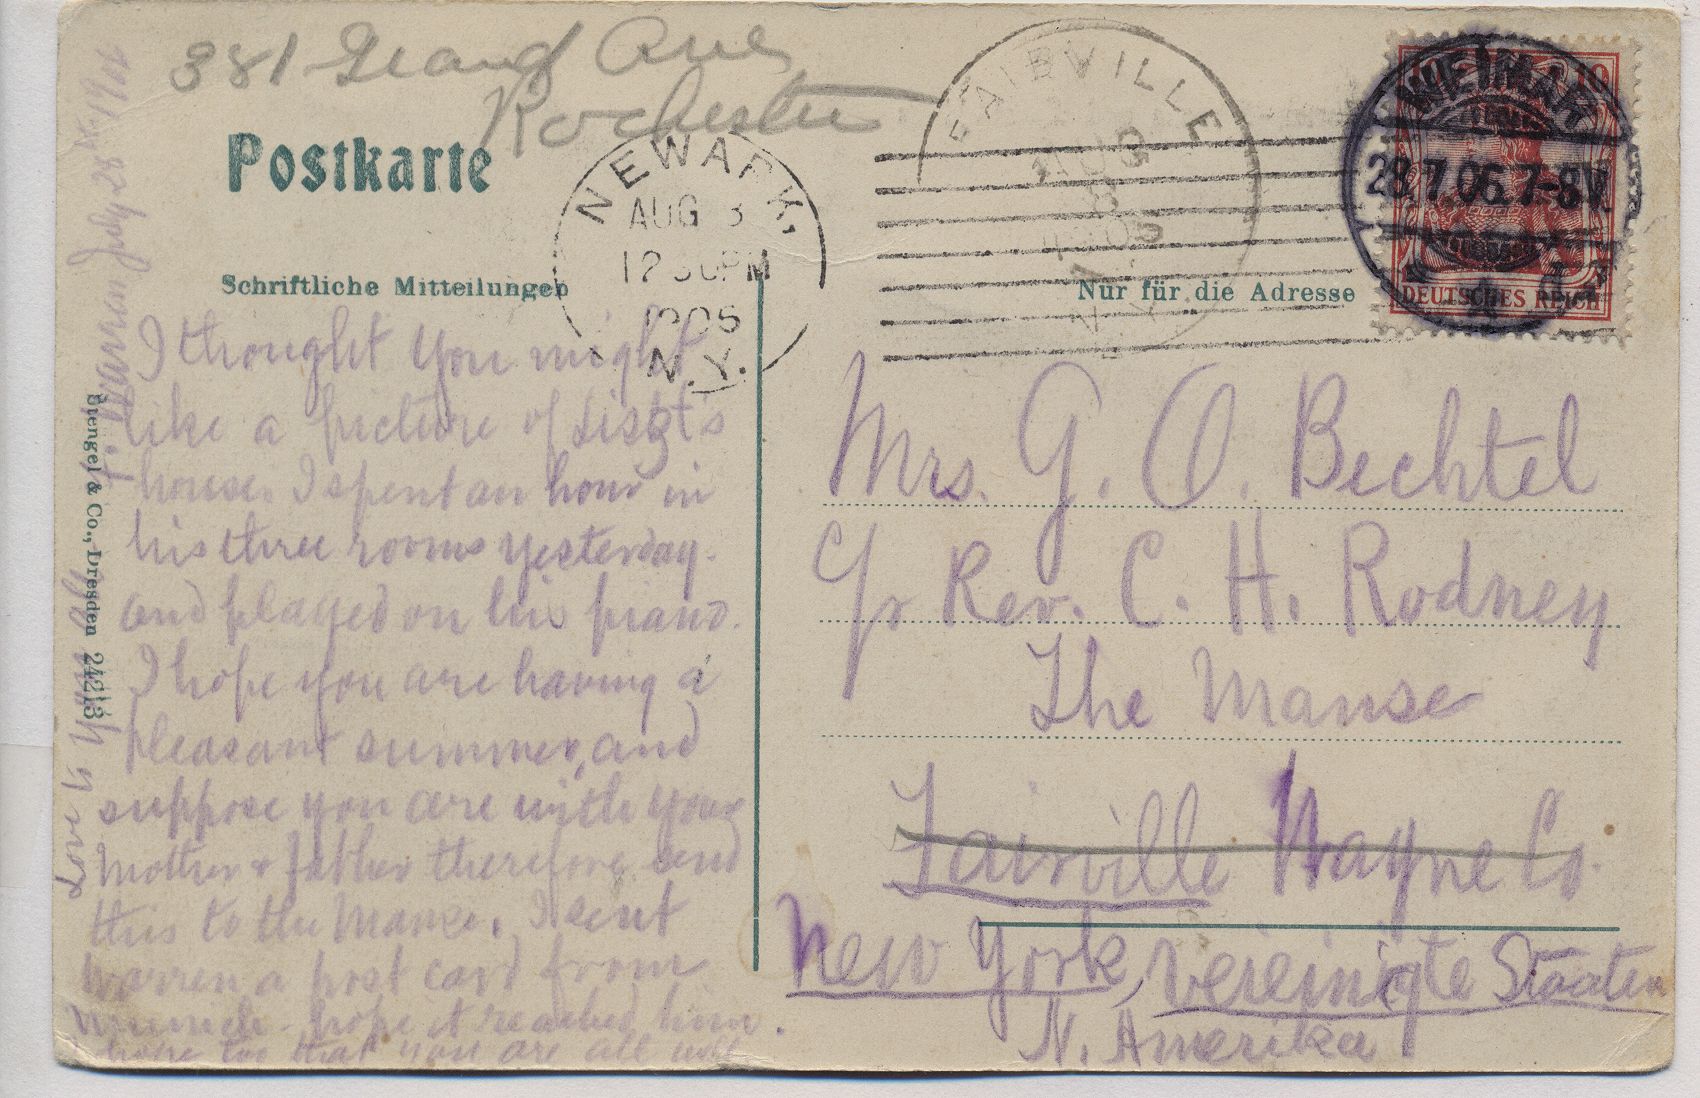 381 Grand Ave
Rochester
Postkarte
NEWARK,
AUG 8
12 30 PM
1906
N.Y.
FAIRVILLE
AUG
8
N.Y.
10
WEIMAR
28.7.06.7-8V.
DEUTSCHES REICH
Schriftliche Mitteilungen
Nur für die Adresse
I thought you might
like a picture of Liszt's
house. I spent an hour in
his three rooms yesterday.
and played on his piano.
I hope you are having a
pleasant summer, and
suppose you are with your
mother & father therefore send
this to the Manse. I sent
Warren a post card from
Munich - hope it reached him.
I hope too that you are all well
Love to you all
July 28th 1906
Stengel & Co., Dresden 24213
Mrs. G. O. Bechtel
c/o Rev. C. H. Rodney
The Manse
Fairville Wayne Co.
New York, Vereinigte Staaten
N. Amerika